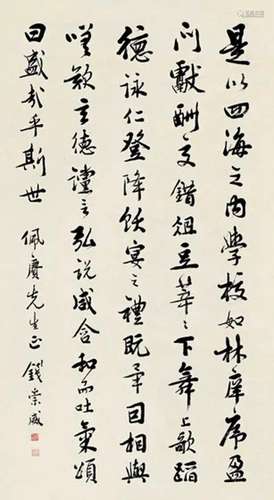 是以四海之内學校如林庠序盈
门獻酬交錯俎豆莘々下舞上歌蹈
德詠仁登降飫宴之禮既畢因相與
嗟歎玄德讜言弘說咸含和而吐氣頌
曰盛哉乎斯世 佩賡先生正 錢崇威